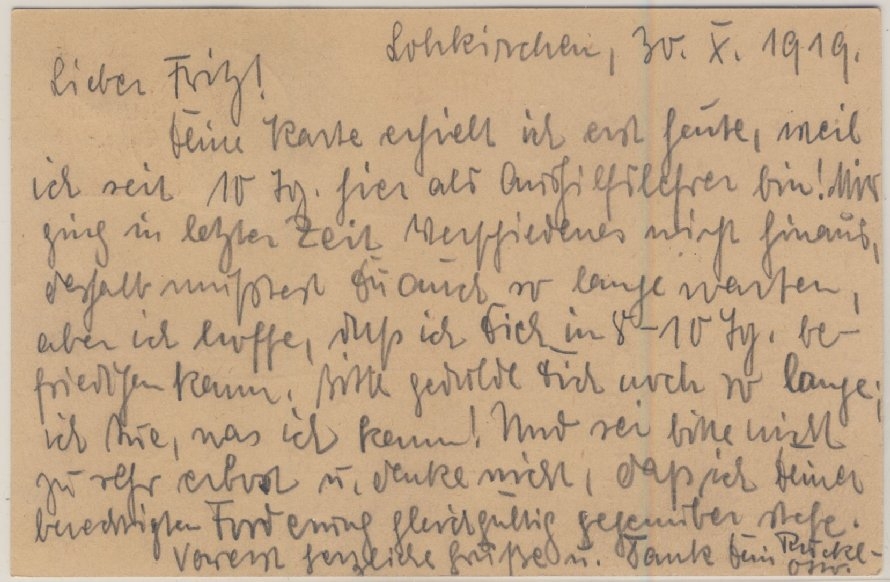 Lohkirchen, 30. X. 1919.
Lieber Fritz!
Deine Karte erhielt ich erst heute, weil
ich seit 10 Tg. hier als Aushilfslehrer bin! Mir
ging in letzter Zeit Verschiedenes nicht hinaus,
deshalb mußtest Du auch so lange warten,
aber ich hoffe, daß ich Dich in 8-10 Tg. be-
friedigen kann. Bitte gedulde Dich noch so lange;
ich tue, was ich kann! Und sei bitte nicht
zu sehr erbost u. denke nicht, daß ich Deiner
berechtigten Forderung gleichgültig gegenüber stehe.
Vorerst herzliche Grüße u. Dank Dein